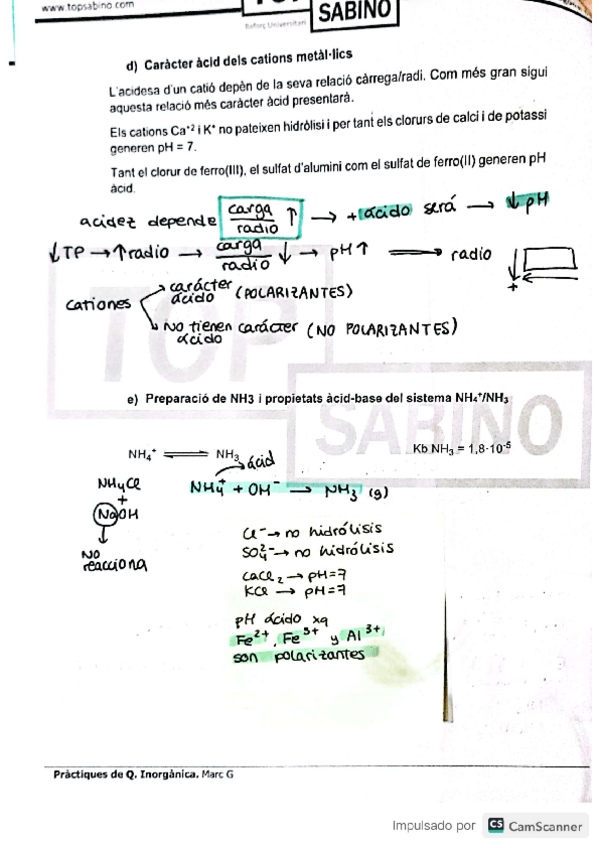 www.topsabino.com
TOP
SABINO
Reforç Universitari
d) Caràcter àcid dels cations metàl·lics
L'acidesa d'un catió depèn de la seva relació càrrega/radi. Com més gran sigui
aquesta relació més caràcter àcid presentarà.
Els cations Ca⁺² i K⁺ no pateixen hidròlisi i per tant els clorurs de calci i de potassi
generen pH = 7.
Tant el clorur de ferro(III), el sulfat d'alumini com el sulfat de ferro(II) generen pH
àcid.
acidez depende carga/radio ↑ → + ácido será → ↓ pH
↓TP → ↑radio → carga/radio ↓ → pH↑ ⟹ radio ↓ +
cationes
carácter ácido (POLARIZANTES)
NO tienen carácter ácido (NO POLARIZANTES)
TOP
SABINO
e) Preparació de NH3 i propietats àcid-base del sistema NH₄⁺/NH₃
NH₄⁺ ⇌ NH₃ Kb NH₃ = 1,8·10⁻⁵
àcid
NH₄Cl NH₄⁺ + OH⁻ → NH₃ (g)
+
NaOH
↓
NO
reacciona
Cl⁻ → no hidrólisis
SO₄²⁻ → no hidrólisis
CaCl₂ → pH=7
KCl → pH=7
pH ácido xq
Fe²⁺, Fe³⁺ y Al³⁺
son polarizantes
Pràctiques de Q. Inorgànica. Marc G
Impulsado por CS CamScanner